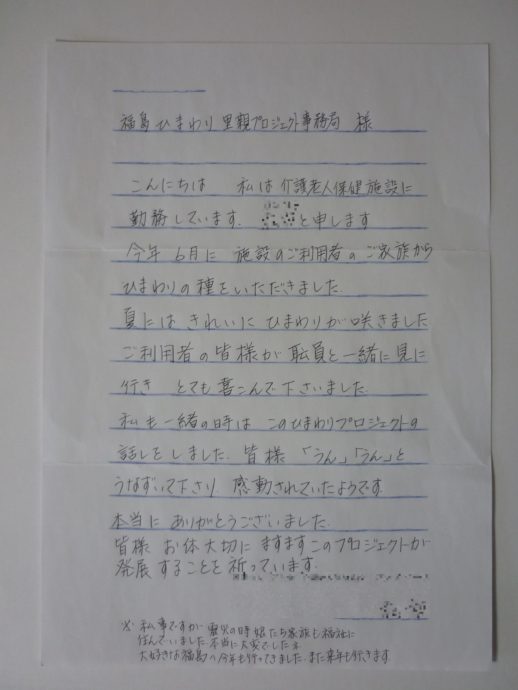 福島ひまわり里親プロジェクト事務局 様
こんにちは 私は介護老人保健施設に
勤務しています。 と申します
今年6月に 施設のご利用者のご家族から
ひまわりの種をいただきました。
夏には きれいに ひまわりが咲きました
ご利用者の皆様が 職員と一緒に見に
行き とても喜こんで下さいました
私も一緒の時は このひまわりプロジェクトの
話しをしました。皆様 「うん」「うん」と
うなずいて下さり、感動されていたようです。
本当に ありがとうございました。
皆様 お体大切に ますますこのプロジェクトが
発展することを祈っています。
※ 私事ですが 震災の時 娘たち家族も福祉に
住んでいました。本当に大変でしたネ
大好きな福島へ今年も行ってきました。また来年も行きます。